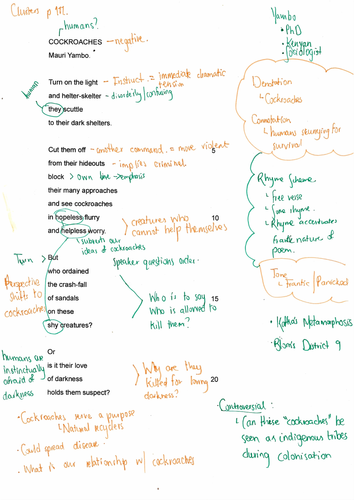 Clusters p 142.
humans?
COCKROACHES – negative.
Mauri Yambo.
human
Turn on the light – Instruct. = immediate dramatic tension
and helter-skelter – disorderly/confusing
they scuttle
to their dark shelters.
Cut them off – another command = more violent
5
from their hideouts – implies criminal
block > own line → emphasis
their many approaches
and see cockroaches
in hopeless flurry
10
and helpless worry.
> creatures who cannot help themselves
subverts our ideas of cockroaches
Turn > But
speaker questions order.
who ordained
the crash-fall
of sandals
15
on these
shy creatures?
Perspective shifts to cockroaches
> Who is to say
Who is allowed to
kill them?
Or
is it their love
of darkness
20
holds them suspect?
humans are
instinctually
afraid of
darkness
> Why are they
killed for loving
darkness?
• Cockroaches serve a purpose
↳ Natural recyclers
• Could spread disease.
• What is our relationship w/ cockroaches
Yambo
• PhD
• Kenyan
• Sociologist
Denotation
↳ Cockroaches
Connotation
↳ humans scurrying for
survival
Rhyme Scheme.
↳ free verse
↳ Some rhyme.
↳ Rhyme accentuates
frantic nature of
poem.
Tone
↳ Frantic/Panicked
• Kafka's Metamorphosis
• District 9
• Controversial:
↳ Can these "cockroaches" be
seen as indigenous tribes
during colonisation